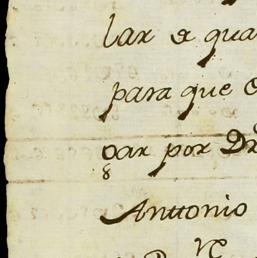 lar a qua
para que
gar por Dn
Anttonio